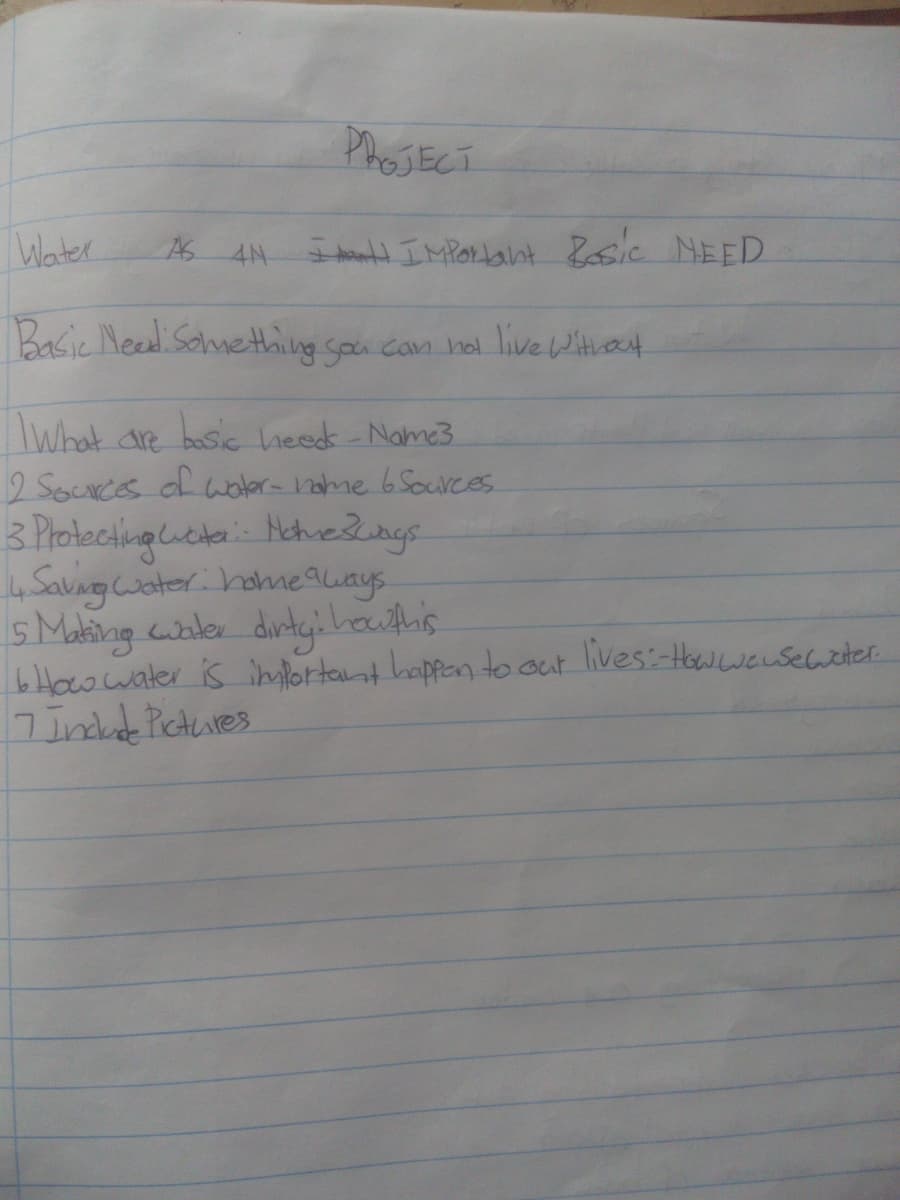 PROJECT
Water AS AN IMPortant Basic NEED
Basic Need: Something you can not live Without
1 What are basic needs - Name 3
2 Sources of water - name 6 Sources
3 Protecting water: - Name 3 ways
4 Saving water: name 9 ways
5 Making water dirty: how this
6 How water is important happen to our lives:- How we use water.
7 Include Pictures